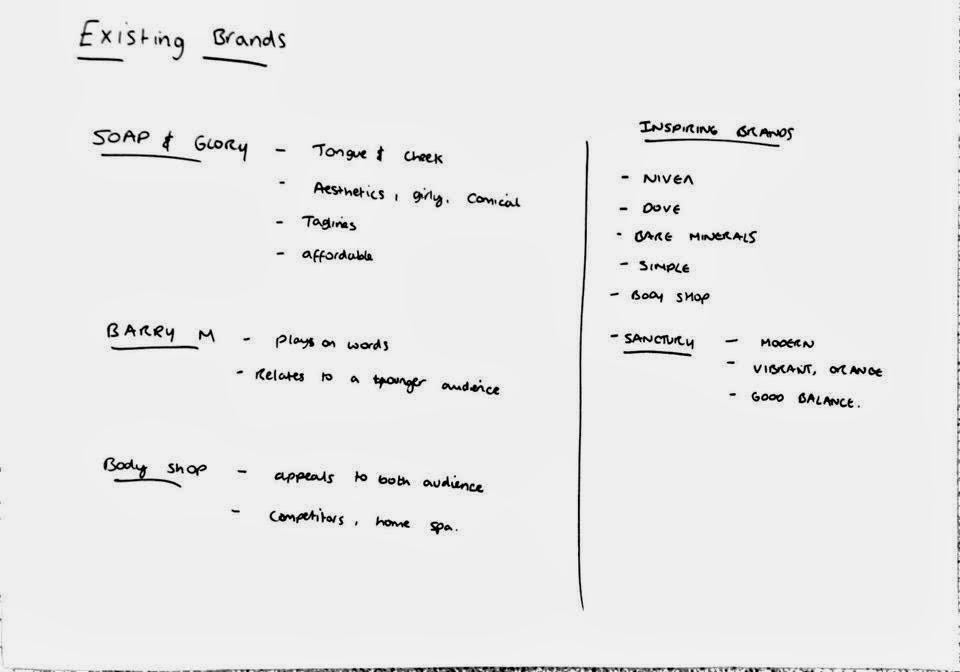 Existing Brands
SOAP & GLORY - Tongue & cheek
- Aesthetics, girly, comical
- Taglines
- affordable
BARRY M - plays on words
- Relates to a younger audience
Body shop - appeals to both audience
- competitors, home spa.
INSPIRING BRANDS
- NIVEA
- DOVE
- BARE MINERALS
- SIMPLE
- BODY SHOP
- SANCTURY - MODERN
- VIBRANT, ORANGE
- GOOD BALANCE.